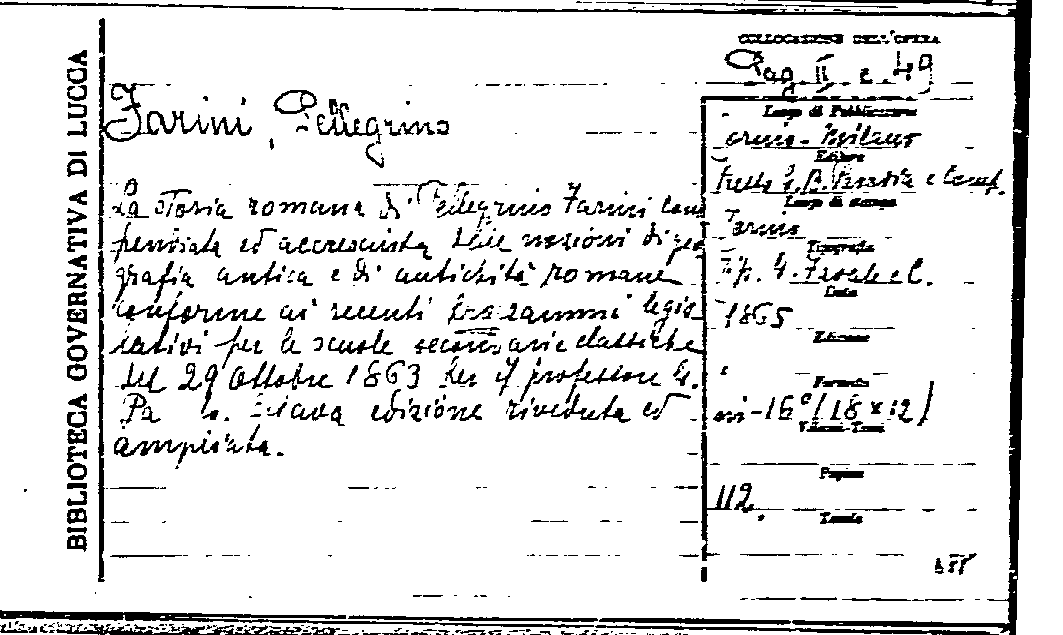 BIBLIOTECA GOVERNATIVA DI LUCCA
COLLOCAZIONE DELL'OPERA
Pag. II e. 49
Farini, Pellegrino
La Storia romana di Pellegrino Farini com
pendiata ed accresciuta delle nozioni di geo
grafia antica e di antichità romane
conforme ai recenti programmi legis
lativi per le scuole secondarie classiche
del 29 Ottobre 1863 per il professore G.
edizione riveduta ed
ampliata.
Luogo di Pubblicazione
Torino - Milano
Editore
G. B. Paravia e Comp.
Luogo di stampa
Torino
Tipografia
Tip. G. e C.
Data
1865
Edizione
Formato
in-16° (18 x 12)
Volumi-Tomi
Pagine
112.
Tavole